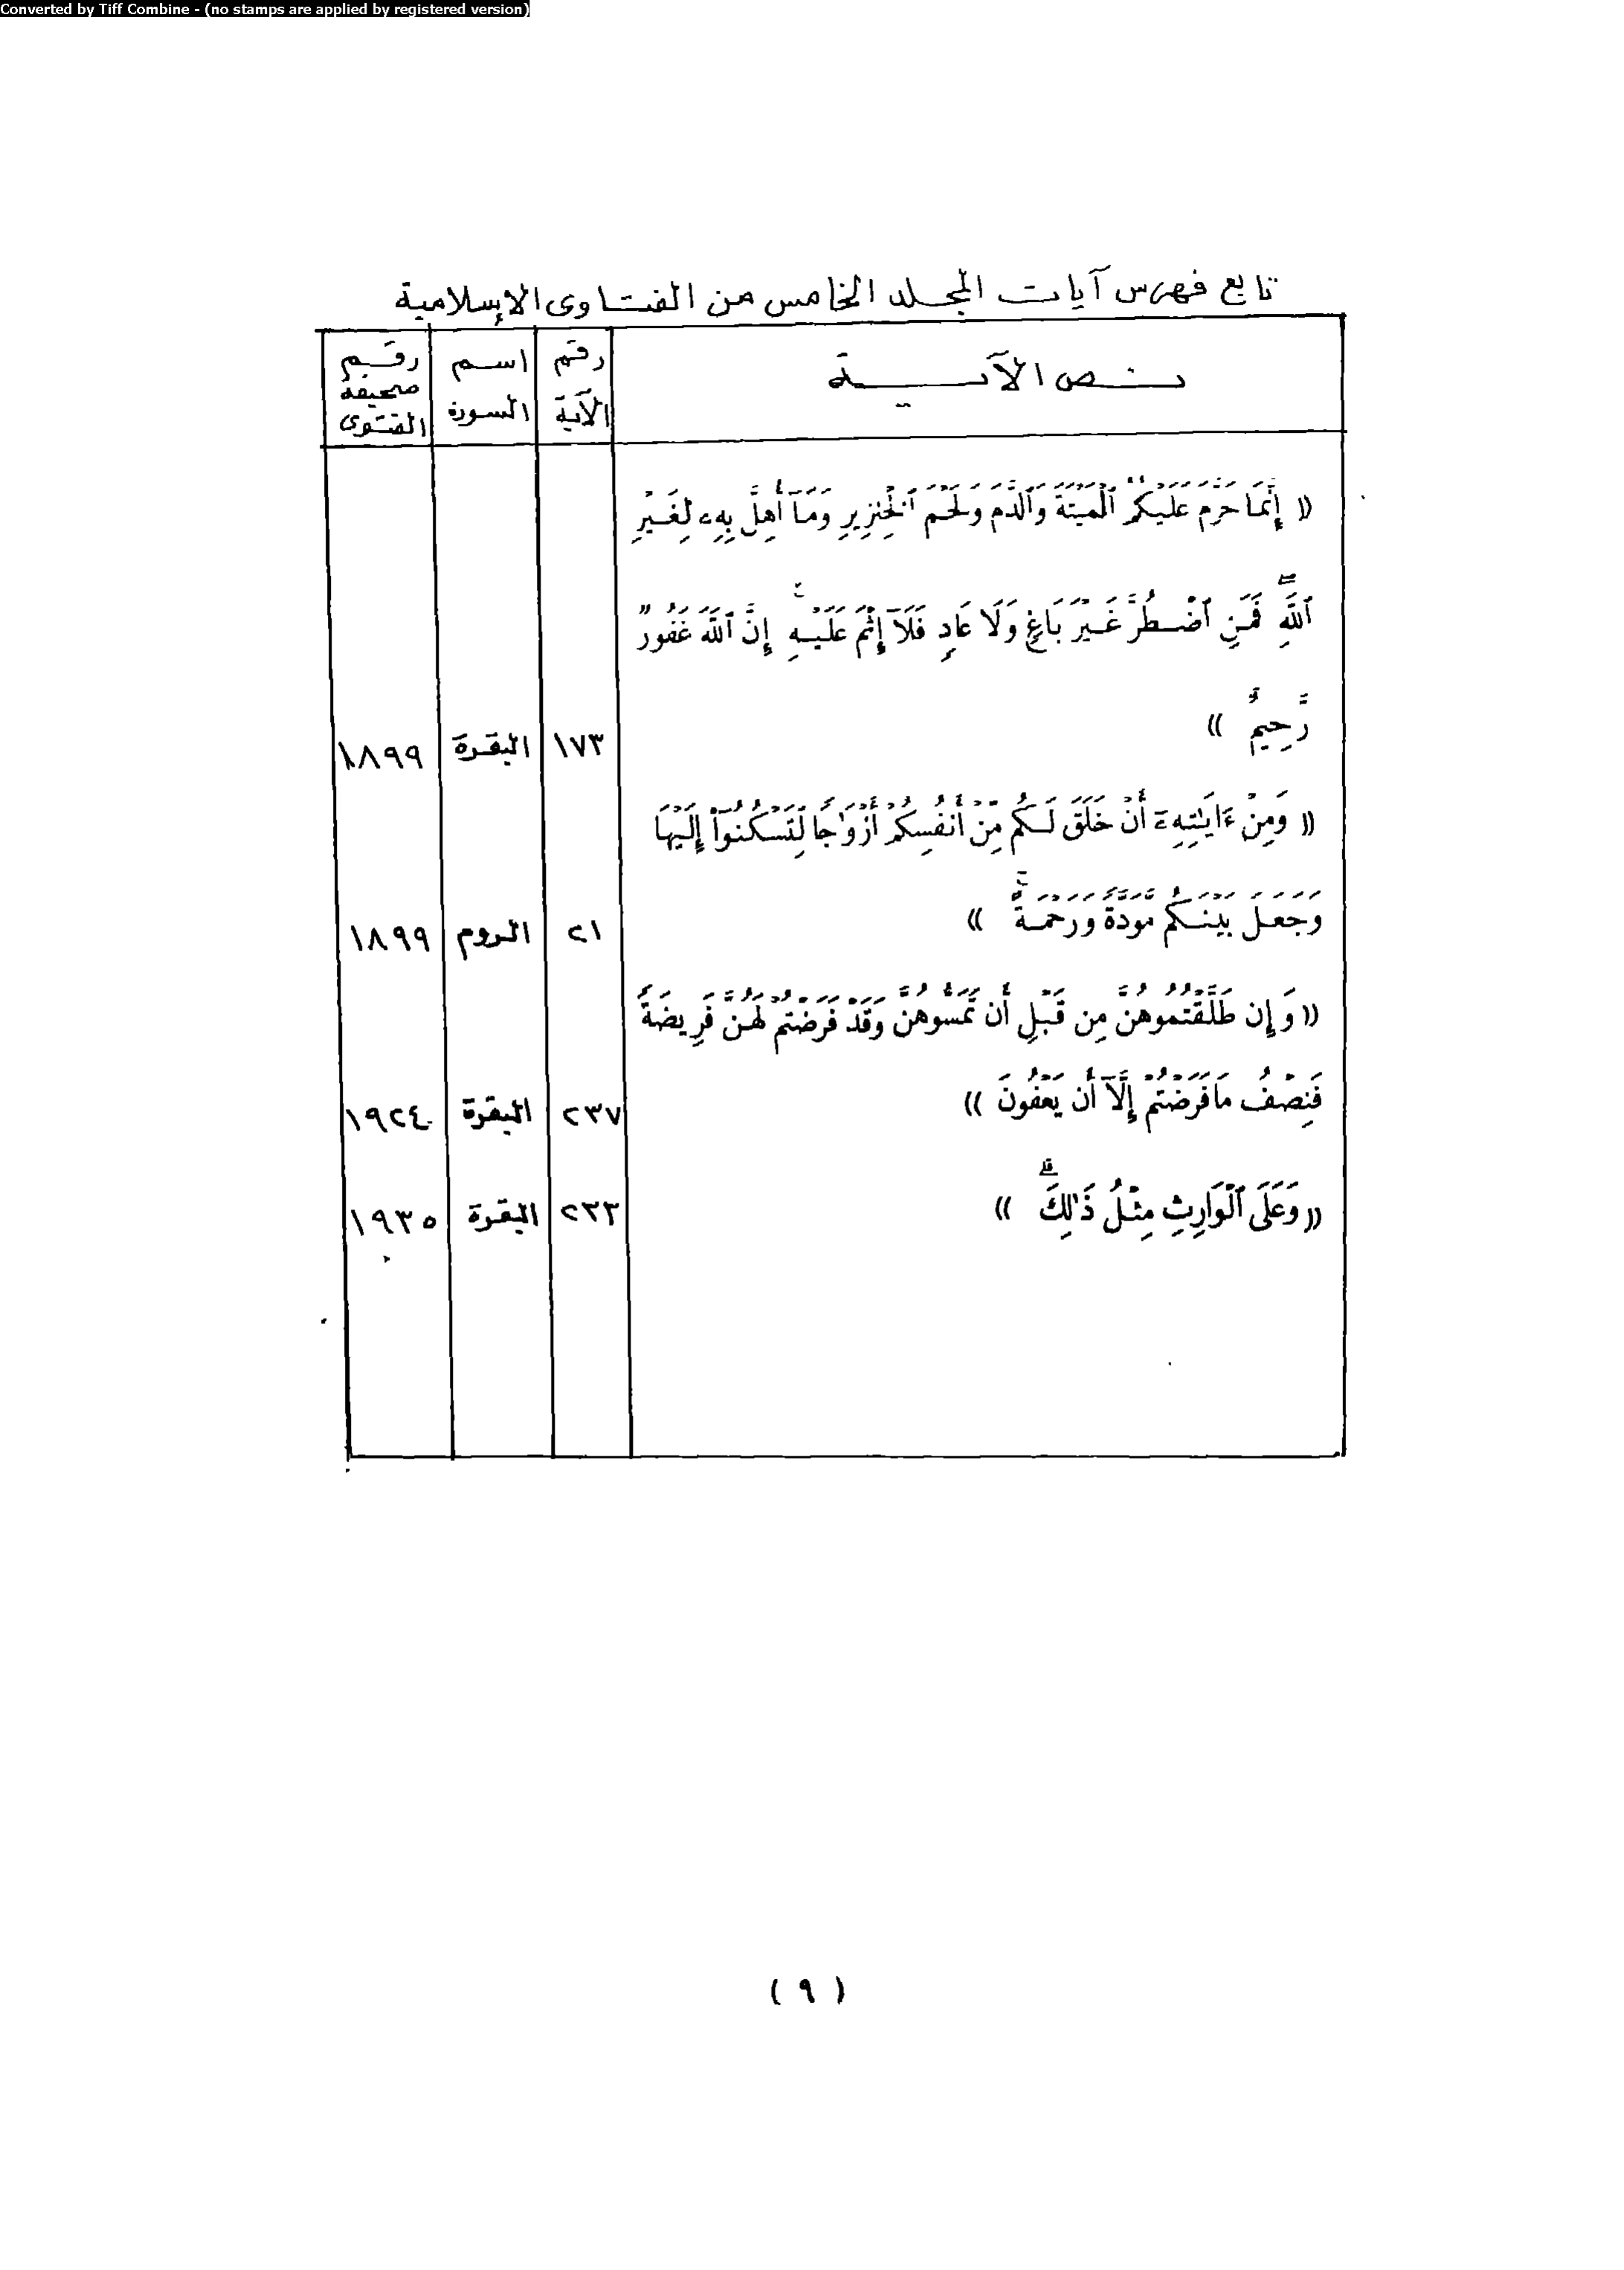 Converted by Tiff Combine - (no stamps are applied by registered version)
تابع فهرس آيات المجلد الخامس من الفتاوى الإسلامية
نص الآية | رقم الآية | اسم السورة | رقم صحيفة الفتوى
(( إِنَّمَا حَرَّمَ عَلَيْكُمُ ٱلْمَيْتَةَ وَٱلدَّمَ وَلَحْمَ ٱلْخِنزِيرِ وَمَآ أُهِلَّ بِهِۦ لِغَيْرِ
ٱللَّهِ ۖ فَمَنِ ٱضْطُرَّ غَيْرَ بَاغٍ وَلَا عَادٍ فَلَآ إِثْمَ عَلَيْهِ ۚ إِنَّ ٱللَّهَ غَفُورٌ
رَّحِيمٌ )) ١٧٣ البقرة ١٨٩٩
(( وَمِنْ ءَايَٰتِهِۦٓ أَنْ خَلَقَ لَكُم مِّنْ أَنفُسِكُمْ أَزْوَٰجًا لِّتَسْكُنُوٓا۟ إِلَيْهَا
وَجَعَلَ بَيْنَكُم مَّوَدَّةً وَرَحْمَةً ۚ )) ٢١ الروم ١٨٩٩
(( وَإِن طَلَّقْتُمُوهُنَّ مِن قَبْلِ أَن تَمَسُّوهُنَّ وَقَدْ فَرَضْتُمْ لَهُنَّ فَرِيضَةً
فَنِصْفُ مَا فَرَضْتُمْ إِلَّآ أَن يَعْفُونَ )) ٢٣٧ البقرة ١٩٢٤
(( وَعَلَى ٱلْوَارِثِ مِثْلُ ذَٰلِكَ ۗ )) ٢٣٣ البقرة ١٩٣٥
( ٩ )